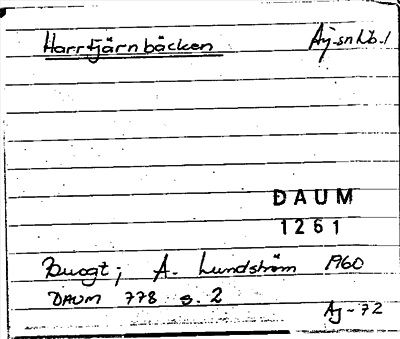 Harrtjärnbäcken Åj-sn Nb.1
DAUM
1261
A. Lundström 1960
DAUM 778 s. 2
Aj-72